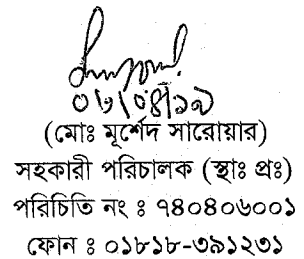 ০৬/০৪/১৯
(মোঃ মূর্শেদ সারোয়ার)
সহকারী পরিচালক (স্থাঃ প্রঃ)
পরিচিতি নং ঃ ৭৪০৪০৬০০১
ফোন ঃ ০১৮১৮-৩৯১২৩১